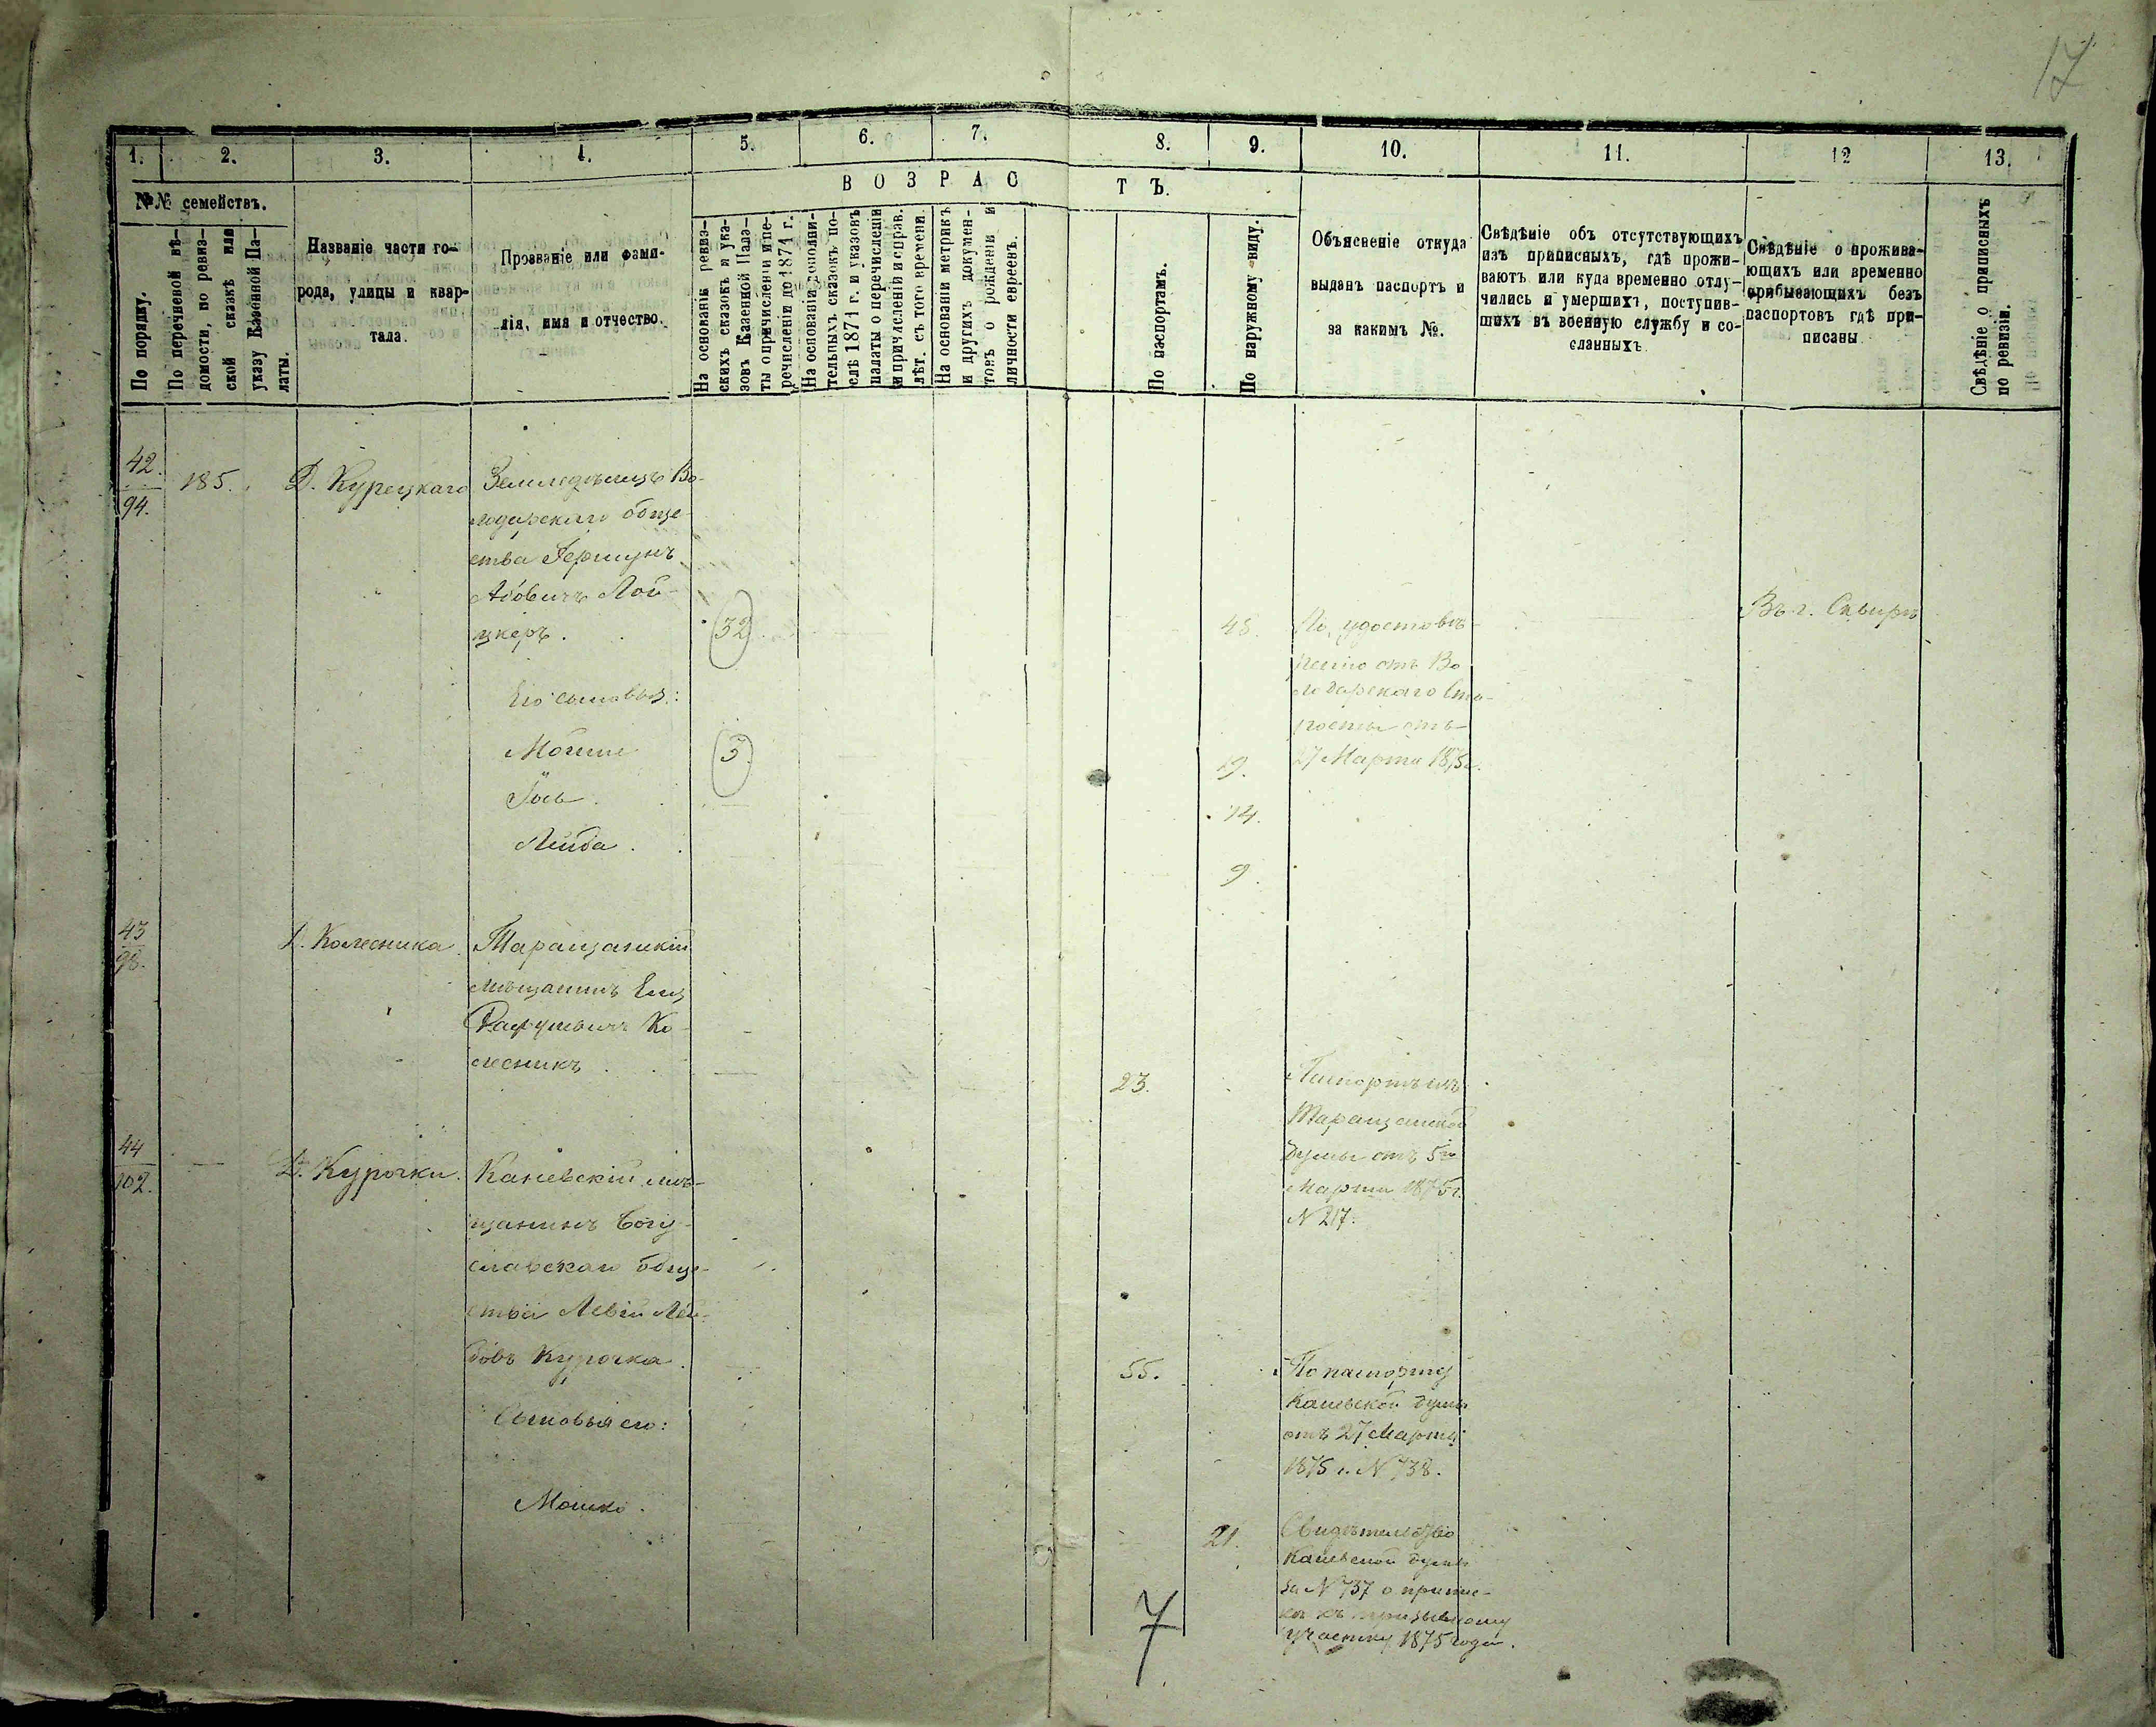 17
1. 2. 3. 4. 5. 6. 7. 8. 9. 10. 11. 12 13.
№№ семействъ.
По порядку.
По перечневой вѣ-
домости, по ревиз-
ской сказкѣ или
указу Казенной Па-
латы.
Названіе части го-
рода, улицы и квар-
тала.
Прозваніе или фами-
лія, имя и отчество.
ВОЗРАСТЪ.
На основаніи ревиз-
скихъ сказокъ и ука-
зовъ Казенной Пала-
ты о причисленіи и пе-
речисленіи до 1871 г.
На основаніи дополни-
тельныхъ сказокъ по-
слѣ 1871 г. и указовъ
палаты о перечисленіи
и причисленій и справ.
лѣт. съ того времени.
На основаніи метрикъ
и другихъ докумен-
товъ о рожденіи и
личности евреевъ.
По паспортамъ.
По наружному виду.
Объясненіе откуда
выданъ паспортъ и
за какимъ №.
Свѣдѣніе объ отсутствующихъ
изъ приписныхъ, гдѣ прожи-
ваютъ или куда временно отлу-
чились и умершихъ, поступив-
шихъ въ военную службу и со-
сланныхъ
Свѣдѣніе о прожива-
ющихъ или временно
прибывающихъ безъ
паспортовъ гдѣ при-
писаны
Свѣдѣніе о приписныхъ
по ревизіи.
42.
94.
185.
Д. Курецкаго
Земледѣлецъ Во-
лодарскаго обще-
ства Гершунъ
Лой-
цкеръ.
32
45.
По удостовѣ-
ренію отъ Во
лодарскаго Ста-
росты отъ
27 Марта 1875 г.
Въ г. Сквирѣ
Его сыновья:
Мошко
5
19.
Іось
14.
Лейба.
9.
43
98.
Д. Колесника.
Таращанскій
мѣщанинъ
Рафуловичъ Ко-
лесникъ
23.
Паспортъ изъ
Таращанской
Думы отъ 5го
Марта 1875 г.
N 217.
44
102.
Д. Курочки.
Каневскій мѣ-
щанинъ Богу-
славскаго обще-
ства Левій Лей-
бовъ Курочка.
55.
По паспорту
Каневской думы
отъ 27 Марта
1875 г. N 738.
Сыновья его:
Мошко.
21.
Свидѣтельство
Каневской думы
за N 737 о припис-
кѣ къ призывному
участку 1875 года.
7